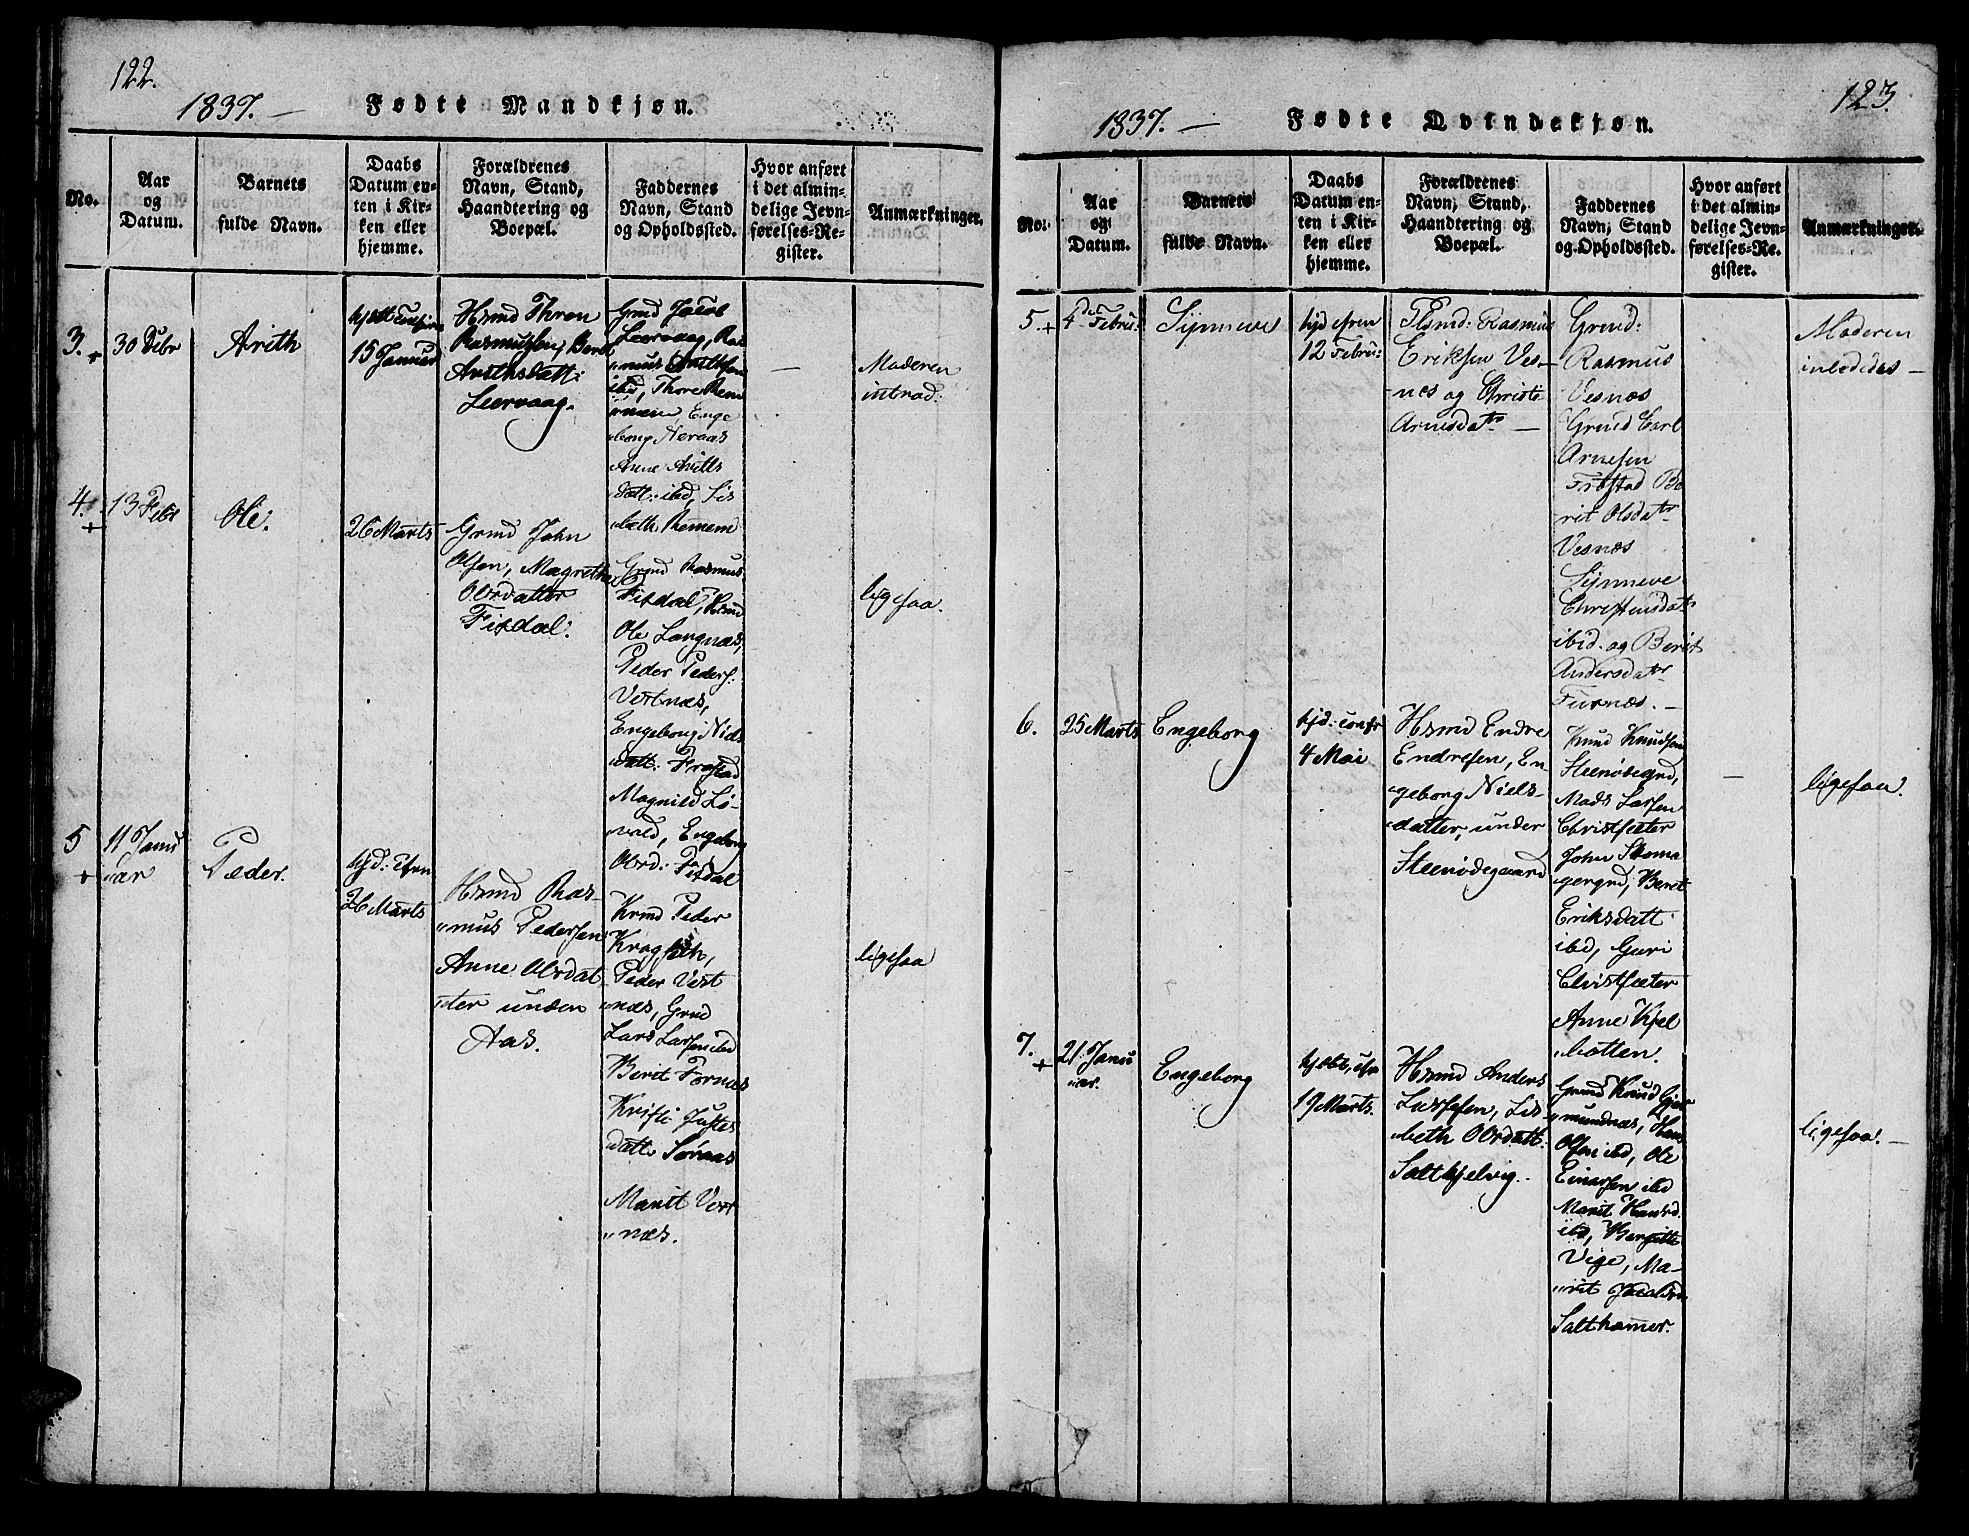 122.
1837. — Fødte Mandkjøn.
No.
Aar
og
Datum.
Barnets
fulde Navn.
Daabs
Datum en-
ten i Kir-
ken eller
hjemme.
Forældrenes
Navn, Stand,
Haandtering og
Boepæl.
Faddernes
Navn, Stand
og Opholdssted.
Hvor anført
i det almin-
delige Jevn-
førelses-Re-
gister.
Anmærkninger.
3. +
30 Debr
Arieth
15 Januar
Hsmd Thron
Rasmussen, Berit
Ariethsdatt:
Leervaag.
Grmd Jacob
Leervaag, Ras
"mus Ariethsen
ibd, Thore Rem
"mem, Enge
"borg Neraas
Anne Arieths
datt: ibd, Lis
"beth Remem
—
Moderen
introd:
4. +
13 Febr
Ole.
26 Marts
Grmd John
Olsen, Magrethe
Olsdatter
Fixdal.
Grmd Rasmus
Fixdal, Hsmd
Ole Langnæs,
Peder Peders:
Vestnæs,
Engeborg Niels
datt: Frostad
Magnild Lø-
"vold, Engeborg
Olsd: Fixdal
ligesaa.
5 +
11 Janu
"ar
Peder.
hjd: cfrm
26 Marts
Hsmd Ras-
"mus Pedersen
Anne Olsdat
"ter under
Aas.
Krmd Peder
Kragseth,
Peder Vest
"næs, Grmd
Lars Larsen ibd
Berit Fornæs
Kristi Justes
datt: Søraas
Marit Vest
"næs.
ligesaa
123.
1837. — Fødte Qvindekjøn.
No.
Aar
og
Datum.
Barnets
fulde Navn.
Daabs
Datum en-
ten i Kir-
ken eller
hjemme.
Forældrenes
Navn, Stand,
Haandtering og
Boepæl.
Faddernes
Navn, Stand
og Opholdssted.
Hvor anført
i det almin-
delige Jevn-
førelses-Re-
gister.
Anmærkninger.
5. +
4de Febru:
Synneve
12 Febru:
Rasmus
Eriksen Ves-
nes og Christi
Arnesdatr —
Grmd:
Rasmus
Vesnæs
Grmd Carl
Arnesen
Frostad Be
rit Olsdatr
Vesnæs
Synneve
Christensdatr
ibid. og Berit
Andersdatr
Furnæs. —
Moderen
inlededes —
6.
25 Marts
Engeborg
hjd: confr
4 Mai
Hsmd Endre
Endresen, En
"geborg Niels-
datter, under
Steenødegaard
Knud Knudsen
Steenødegrd,
Mads Larsen
Christsæter
John Skoma
"gergrd, Berit
Eriksdatt
ibd, Guri
Christsæter
Anne Kjel
"botten.
—
ligesaa.
7. +
21 Janu
"ar.
Engeborg
19 Marts.
Hsmd Anders
Larsesen, Lis
"beth Olsdatt:
Saltkjelvig.
Grmd Knud Gjer
"mundnæs, Hans
Olsen ibd, Ole
Einarsen ibd
Marit Hansd.
ibd, Bergitte
Vige, Ma-
"rit Jacobsd.
Salthamer.
ligesaa. —